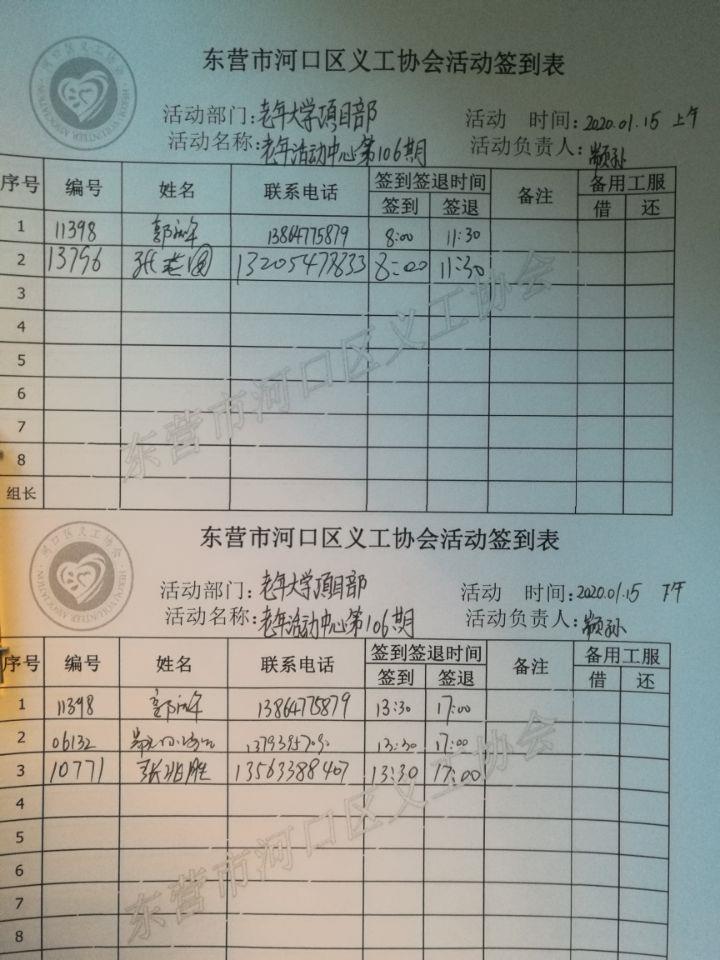 东营市河口区义工协会活动签到表
活动部门:老年大学项目部 活动 时间:2020.01.15 上午
活动名称:老年活动中心第106期 活动负责人:
序号 编号 姓名 联系电话 签到签退时间 备注 备用工服
签到 签退 借 还
1 11398 郭 13864775879 8:00 11:30
2 13796 张 13205477833 8:00 11:30
3
4
5
6
7
8
组长
东营市河口区义工协会
东营市河口区义工协会活动签到表
活动部门:老年大学项目部 活动 时间:2020.01.15 下午
活动名称:老年活动中心第106期 活动负责人:
序号 编号 姓名 联系电话 签到签退时间 备注 备用工服
签到 签退 借 还
1 11398 郭 13864775879 13:30 17:00
2 06132 13:30 17:00
3 10771 张兆胜 13563388407 13:30 17:00
4
5
6
7
8
东营市河口区义工协会